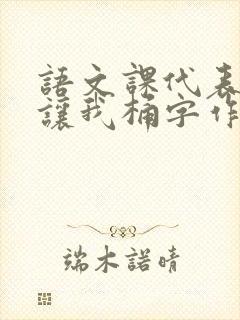 語文課代表
讓我桶字作
端木諾晴